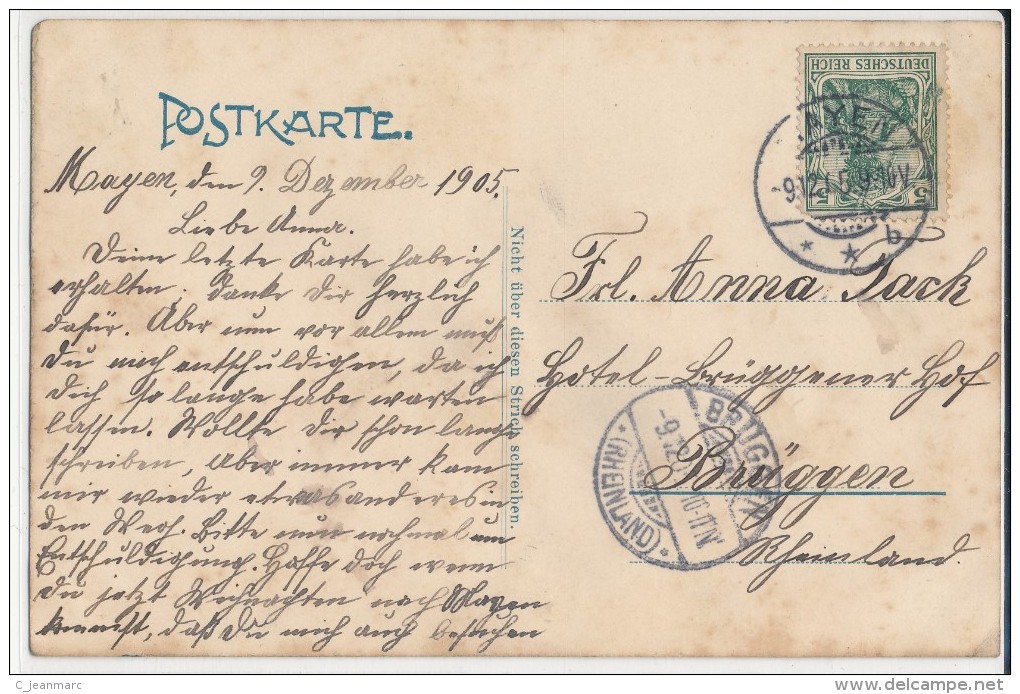 POSTKARTE.
Mayen, den 9. Dezember 1905.
Liebe Anna.
Deine letzte Karte habe ich
erhalten. danke Dir herzlich
dafür. Aber nun vor allem mußt
Du mich entschuldigen, da ich
Dich so lange habe warten
lassen. Wollte Dir schon lange
schreiben, Aber immer kam
mir wieder etwas anderes in
den Weg. Bitte nun nochmal um
Entschuldigung. Hoffe doch wenn
du jetzt Weihnachten nach Mayen
kommst, daß Du mich auch besuchen
Nicht über diesen Strich schreiben.
DEUTSCHES REICH
5 5
MAYEN
b
Frl. Anna Jack
Hotel-Brüggener Hof
Brüggen
Rheinland.
BRÜGGEN
(RHEINLAND)
C_jeanmarc
www.delcampe.net